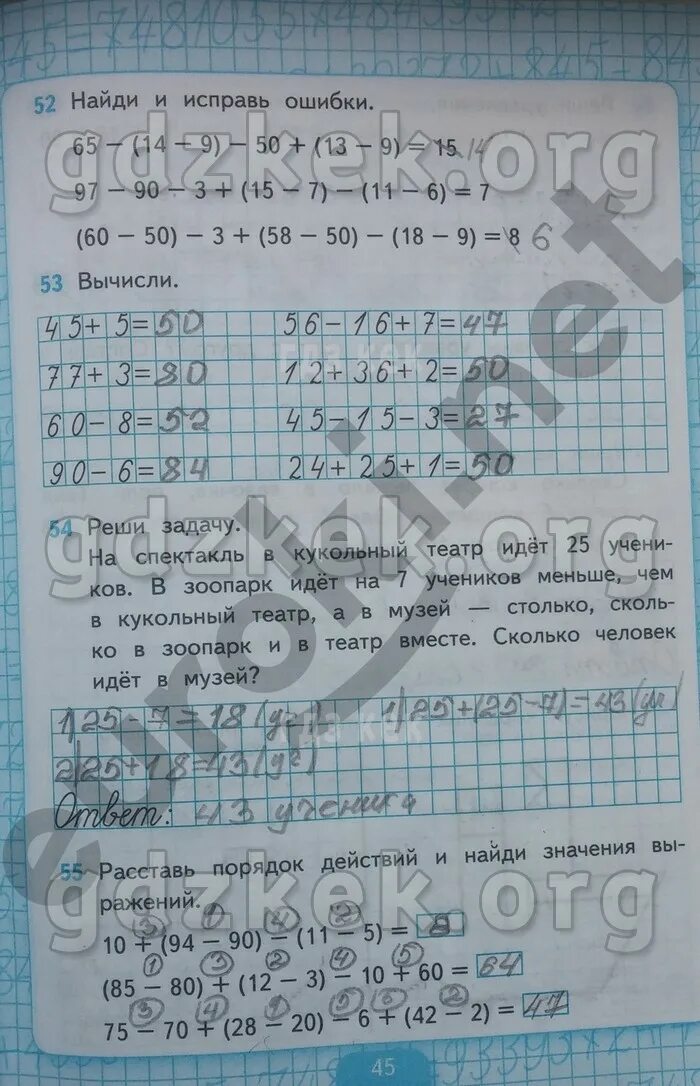 52 Найди и исправь ошибки.
65 − (14 − 9) − 50 + (13 − 9) = 15 14
97 − 90 − 3 + (15 − 7) − (11 − 6) = 7
(60 − 50) − 3 + (58 − 50) − (18 − 9) = 8 6
53 Вычисли.
45+5=50 56−16+7=47
77+3=80 12+36+2=50
60−8=52 45−15−3=27
90−6=84 24+25+1=50
54 Реши задачу.
На спектакль в кукольный театр идёт 25 учени-
ков. В зоопарк идёт на 7 учеников меньше, чем
в кукольный театр, а в музей — столько, сколь-
ко в зоопарк и в театр вместе. Сколько человек
идёт в музей?
1) 25−7=18 (уч) 1) 25+(25−7)=43 (уч)
2) 25+18=43 (уч)
Ответ: 43 ученика
55 Расставь порядок действий и найди значения вы-
ражений.
3 1 4 2
10 + (94 − 90) − (11 − 5) = 8
1 3 2 4 5
(85 − 80) + (12 − 3) − 10 + 60 = 64
3 4 1 5 6 2
75 − 70 + (28 − 20) − 6 + (42 − 2) = 47
45
gdzkek.org
gdzkek.org
gdzkek.org
gdzkek.org
euroki.net